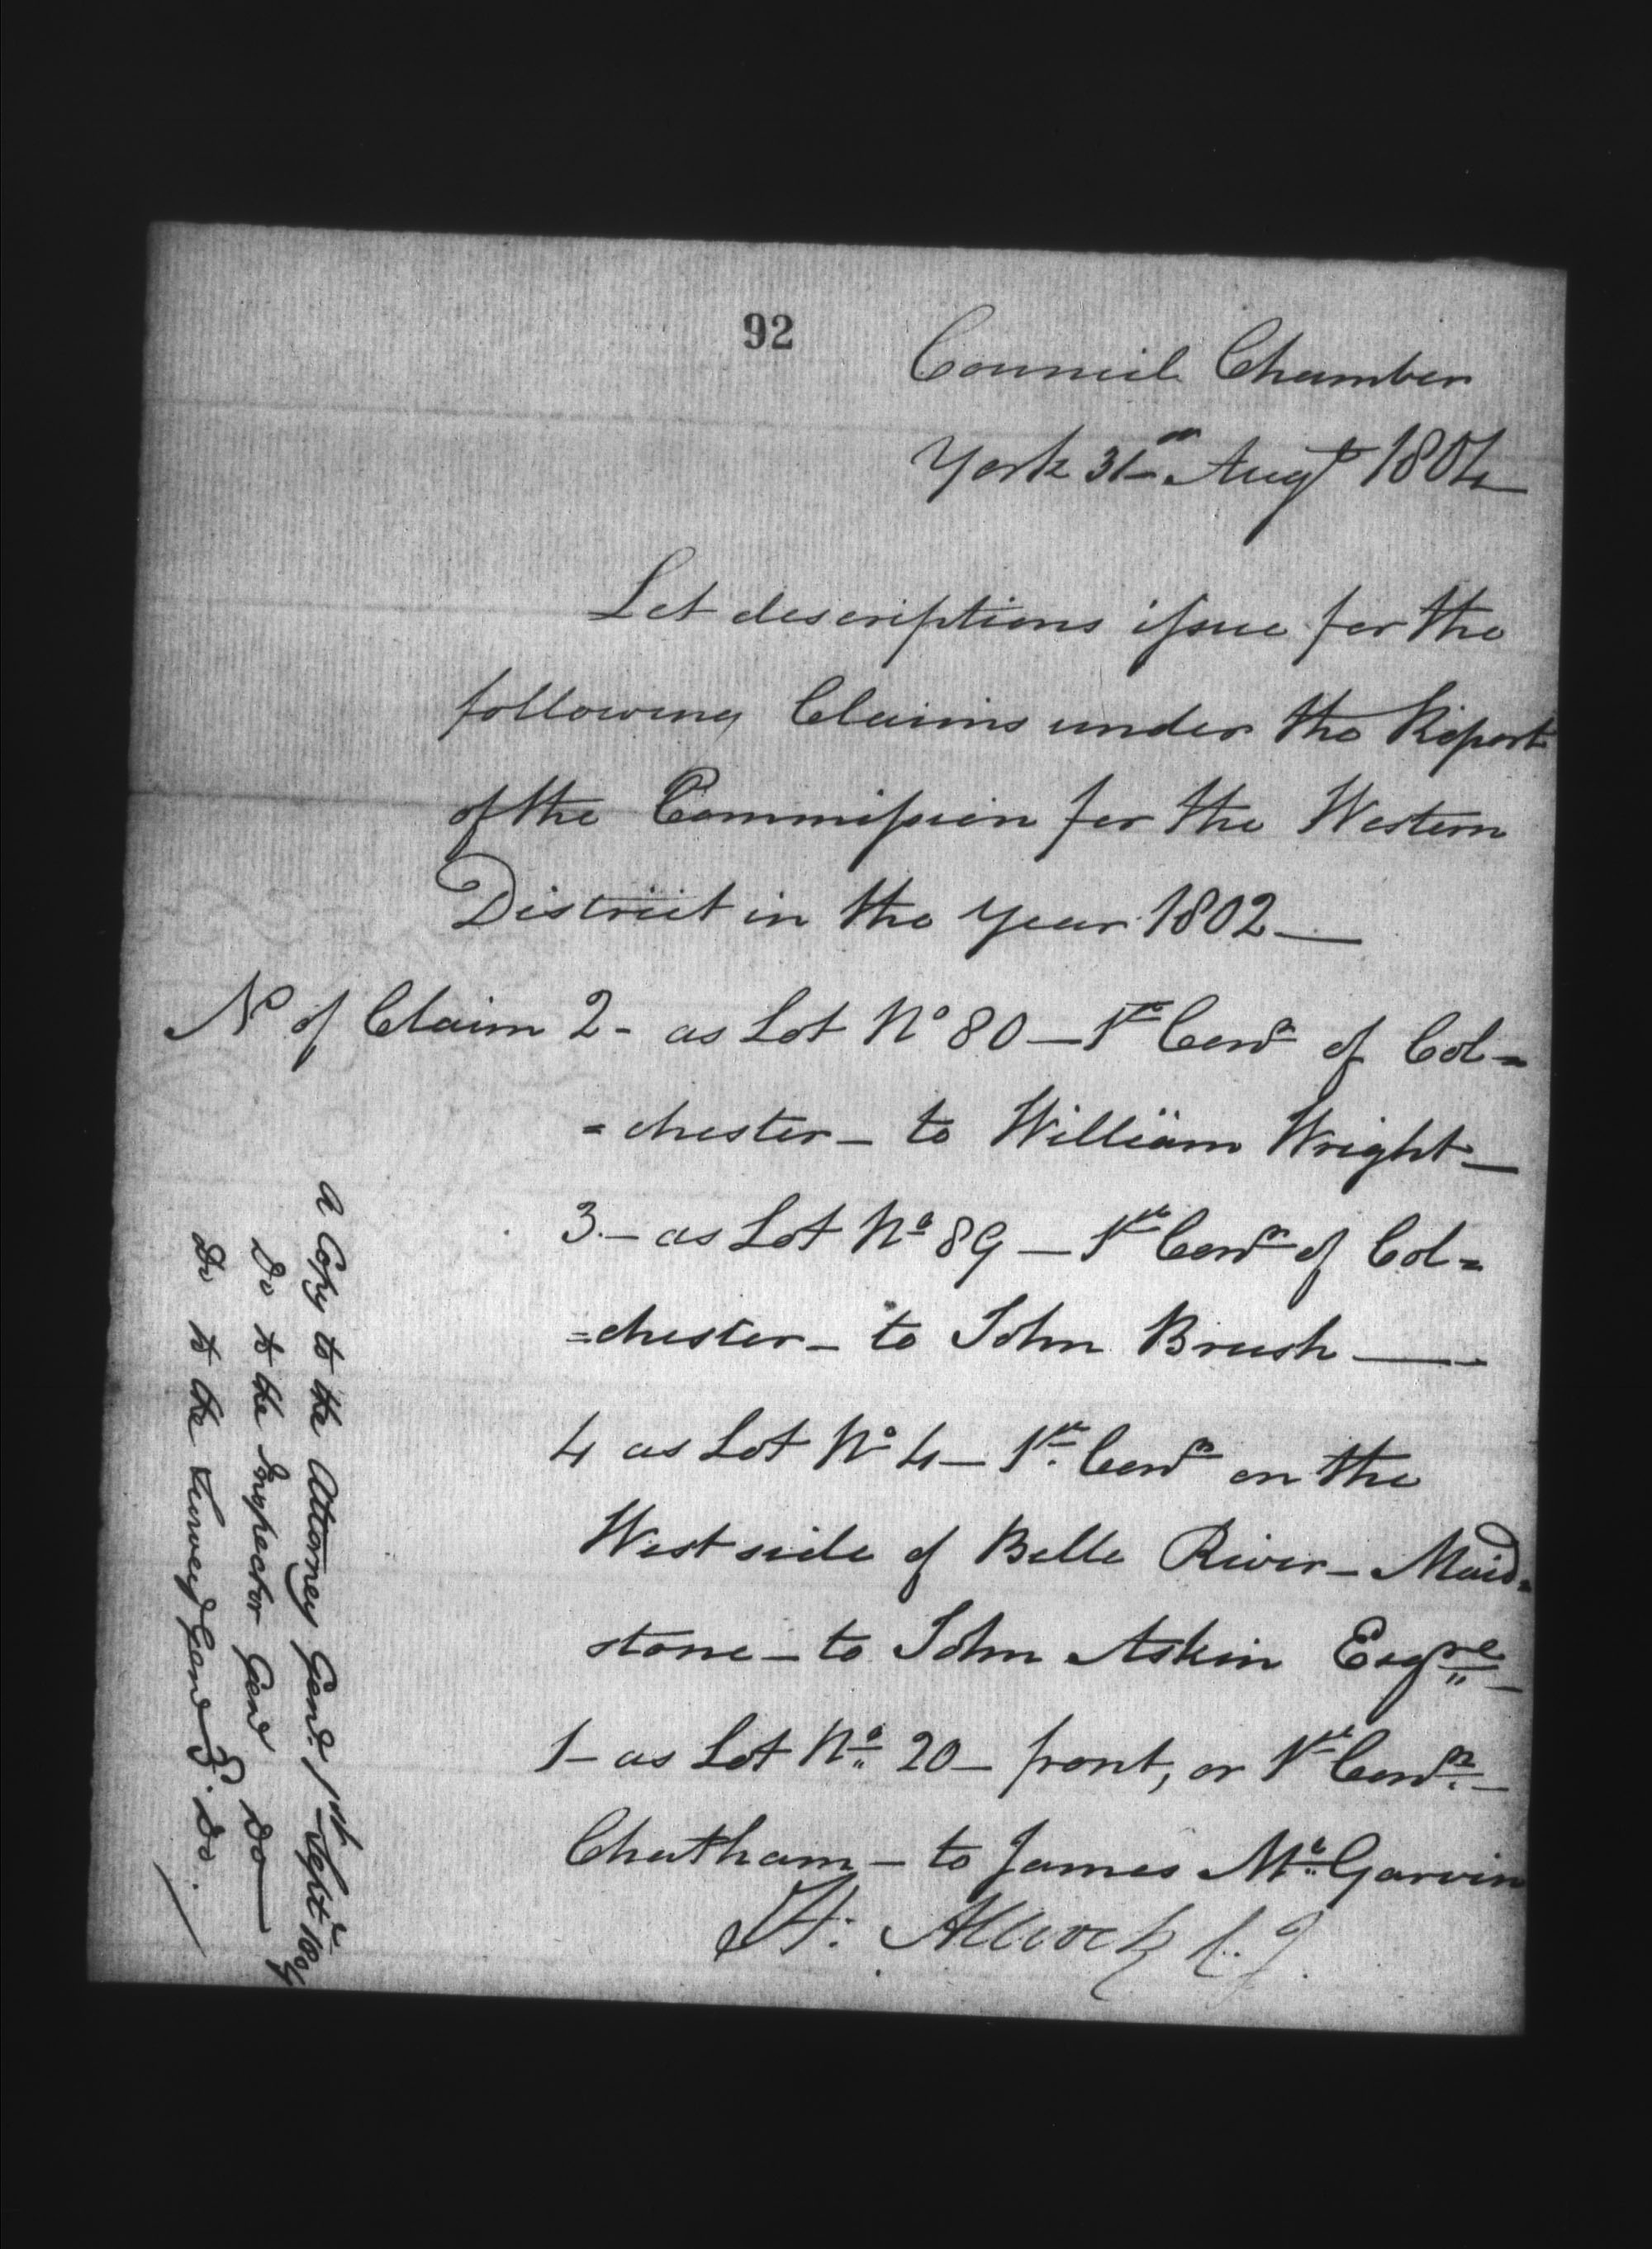 92
Council Chamber
York 31st Augt 1804
Let descriptions issue for the
following Claims under the Report
of the Commission for the Western
District in the Year 1802 —
No of Claim 2 - as Lot No 80 — 1st Conn of Col=
=chester — to William Wright —
3. — as Lot No 89 — 1st Conn of Col=
=chester — to John Brush —
4 as Lot No 4 — 1st Conn on the
West side of Belle River — Maid=
stone — to John Askin Esqre —
1 — as Lot No 20 — front, or 1st Conn —
Chatham — to James Mc Garvin
H: Allcock C.J.
A Copy to the Attorney Genl 1st Septr 1804
Do to the Inspector Genl Do
Do to the Survey Genl Do.